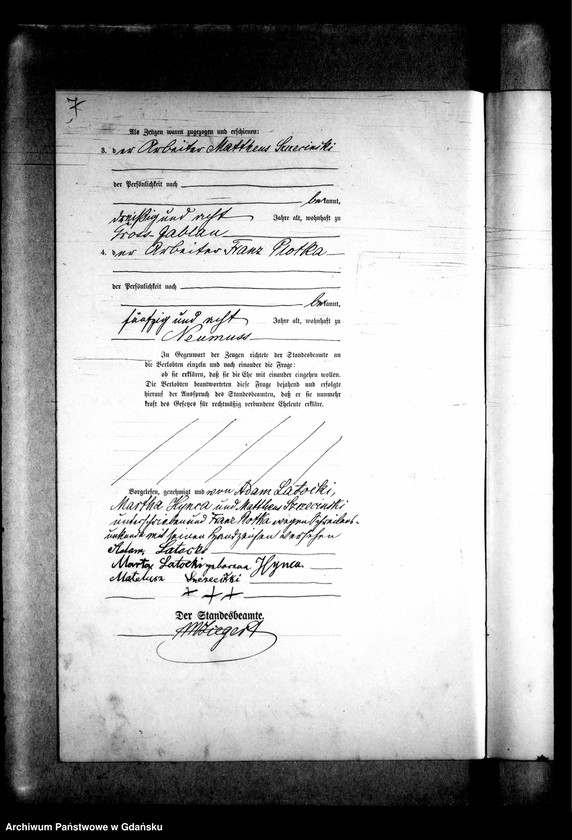 7
Als Zeugen waren zugezogen und erschienen:
3. der Arbeiter Mattheus Szrecinski
der Persönlichkeit nach
bekannt,
dreißig und acht Jahre alt, wohnhaft zu
Gross-Jablau
4. der Arbeiter Franz Plotka
der Persönlichkeit nach
bekannt,
fünfzig und acht Jahre alt, wohnhaft zu
Neumuss
In Gegenwart der Zeugen richtete der Standesbeamte an
die Verlobten einzeln und nach einander die Frage:
ob sie erklären, daß sie die Ehe mit einander eingehen wollen.
Die Verlobten beantworteten diese Frage bejahend und erfolgte
hierauf der Ausspruch des Standesbeamten, daß er sie nunmehr
kraft des Gesetzes für rechtmäßig verbundene Eheleute erkläre.
Vorgelesen, genehmigt und von Adam Latocki,
Martha Hynca und Mattheus Szrecinski
unterschrieben und Franz Plotka wegen Schreibens-
unkunde mit seinem Handzeichen versehen
Adam Latocki
Marta Latocki geborene Hynca
Mateusz
+ + +
Der Standesbeamte.
Archiwum Państwowe w Gdańsku